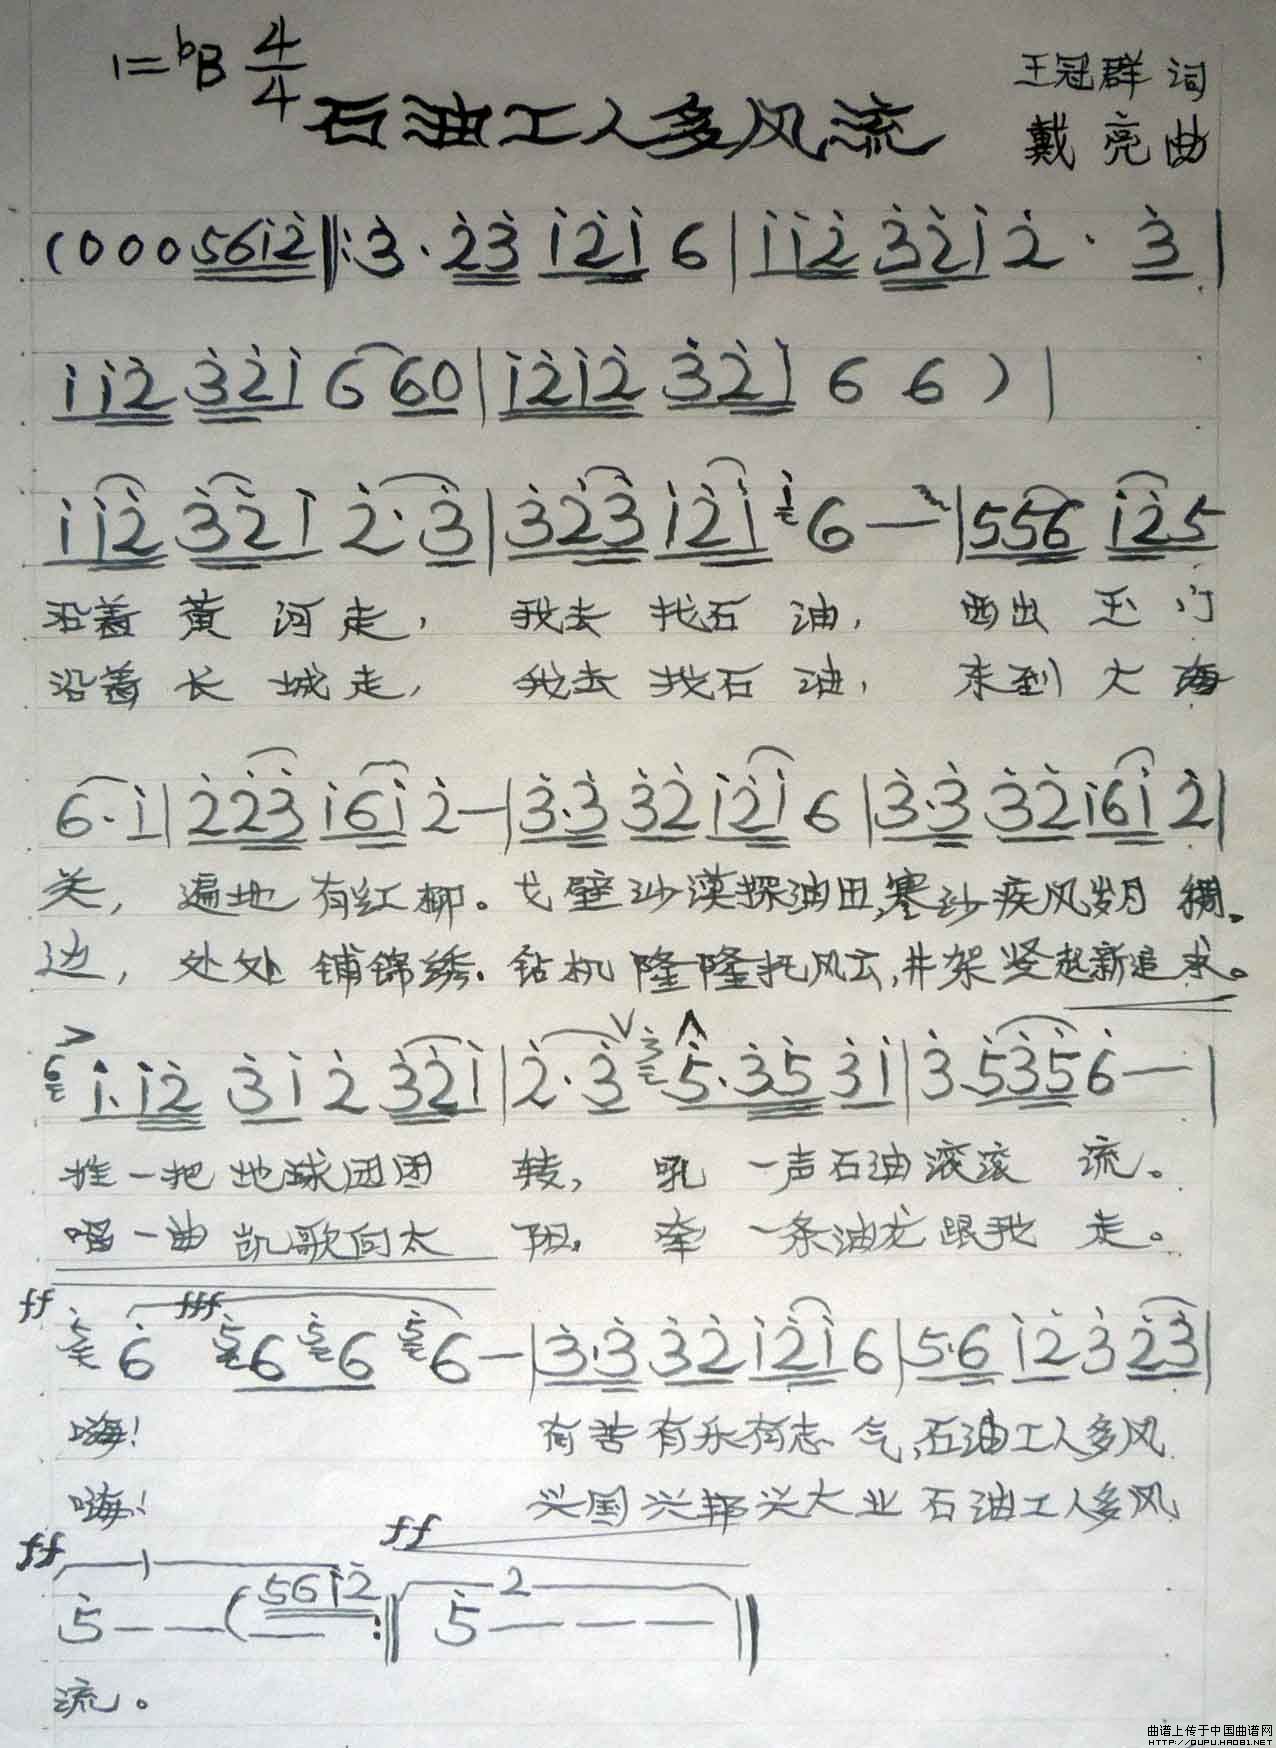 1=♭B 4/4
石油工人多风流
王冠群 词
戴亮曲
(0 0 0 5612‖:3·23 121 6|112 321 2·3|
112 321 6 60|1212 321 6 6)|
112 321 2·3|323 121 6—|556 125
沿着黄河走，我去找石油，西出玉门
沿着长城走，我去找石油，东到大海
6·1|223 161 2—|3·3 32 121 6|3·3 32 161 2|
关，遍地有红柳。戈壁沙漠探油田,寒沙疾风岁月稠。
边，处处铺锦绣.钻机隆隆托风云,井架竖起新追求。
6 1·12 31 2 321|2·3 3 5·35 31|3 535 6—|
推一把地球团团转，吼一声石油滚滚流。
唱一曲凯歌向太阳，牵一条油龙跟我走。
ff fff
5 6 5 6 5 6 5 6—|3·3 32 121 6|5·6 12 3 23|
嗨！有苦有乐有志气,石油工人多风
嗨！兴国兴邦兴大业石油工人多风
ff 1 ff 2
5———(5612:‖5———‖
流。
曲谱上传于中国曲谱网
HTTP://QUPU.HAO81.NET